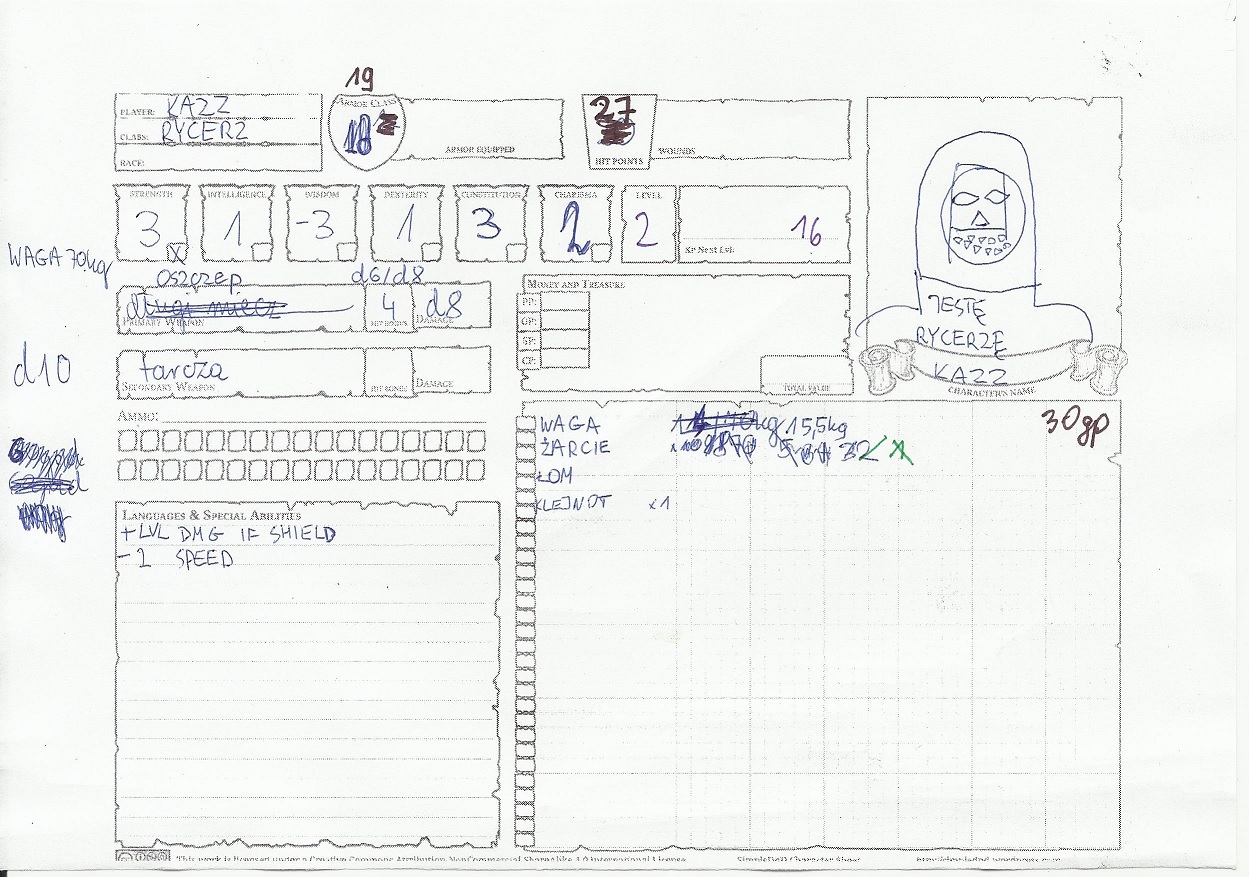 19
PLAYER: KAZZ
CLASS: RYCERZ
RACE:
ARMOR CLASS
18
ARMOR EQUIPPED
27
HIT POINTS
WOUNDS
STRENGTH
3
INTELLIGENCE
1
WISDOM
-3
DEXTERITY
1
CONSTITUTION
3
CHARISMA
2
LEVEL
2
XP NEXT LVL:
16
WAGA 70kg
OSZCZEP
d6/d8
długi miecz
PRIMARY WEAPON
4
HIT BONUS
d8
DAMAGE
d10
tarcza
SECONDARY WEAPON
HIT BONUS
DAMAGE
AMMO:
MONEY AND TREASURE
PP:
GP:
SP:
CP:
TOTAL VALUE
JESTĘ
RYCERZĘ
KAZZ
CHARACTER'S NAME
30gp
WAGA 15,5kg
ŻARCIE
ŁOM
KLEJNOT x1
LANGUAGES & SPECIAL ABILITIES
+LVL DMG IF SHIELD
-1 SPEED
This work is licensed under a Creative Commons Attribution-NonCommercial-ShareAlike 4.0 International License